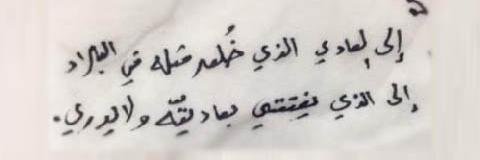 إلى العادي الذي خُلعد مثله في البلاد
إلى الذي يفتتني بعاديّته ولا يدري.